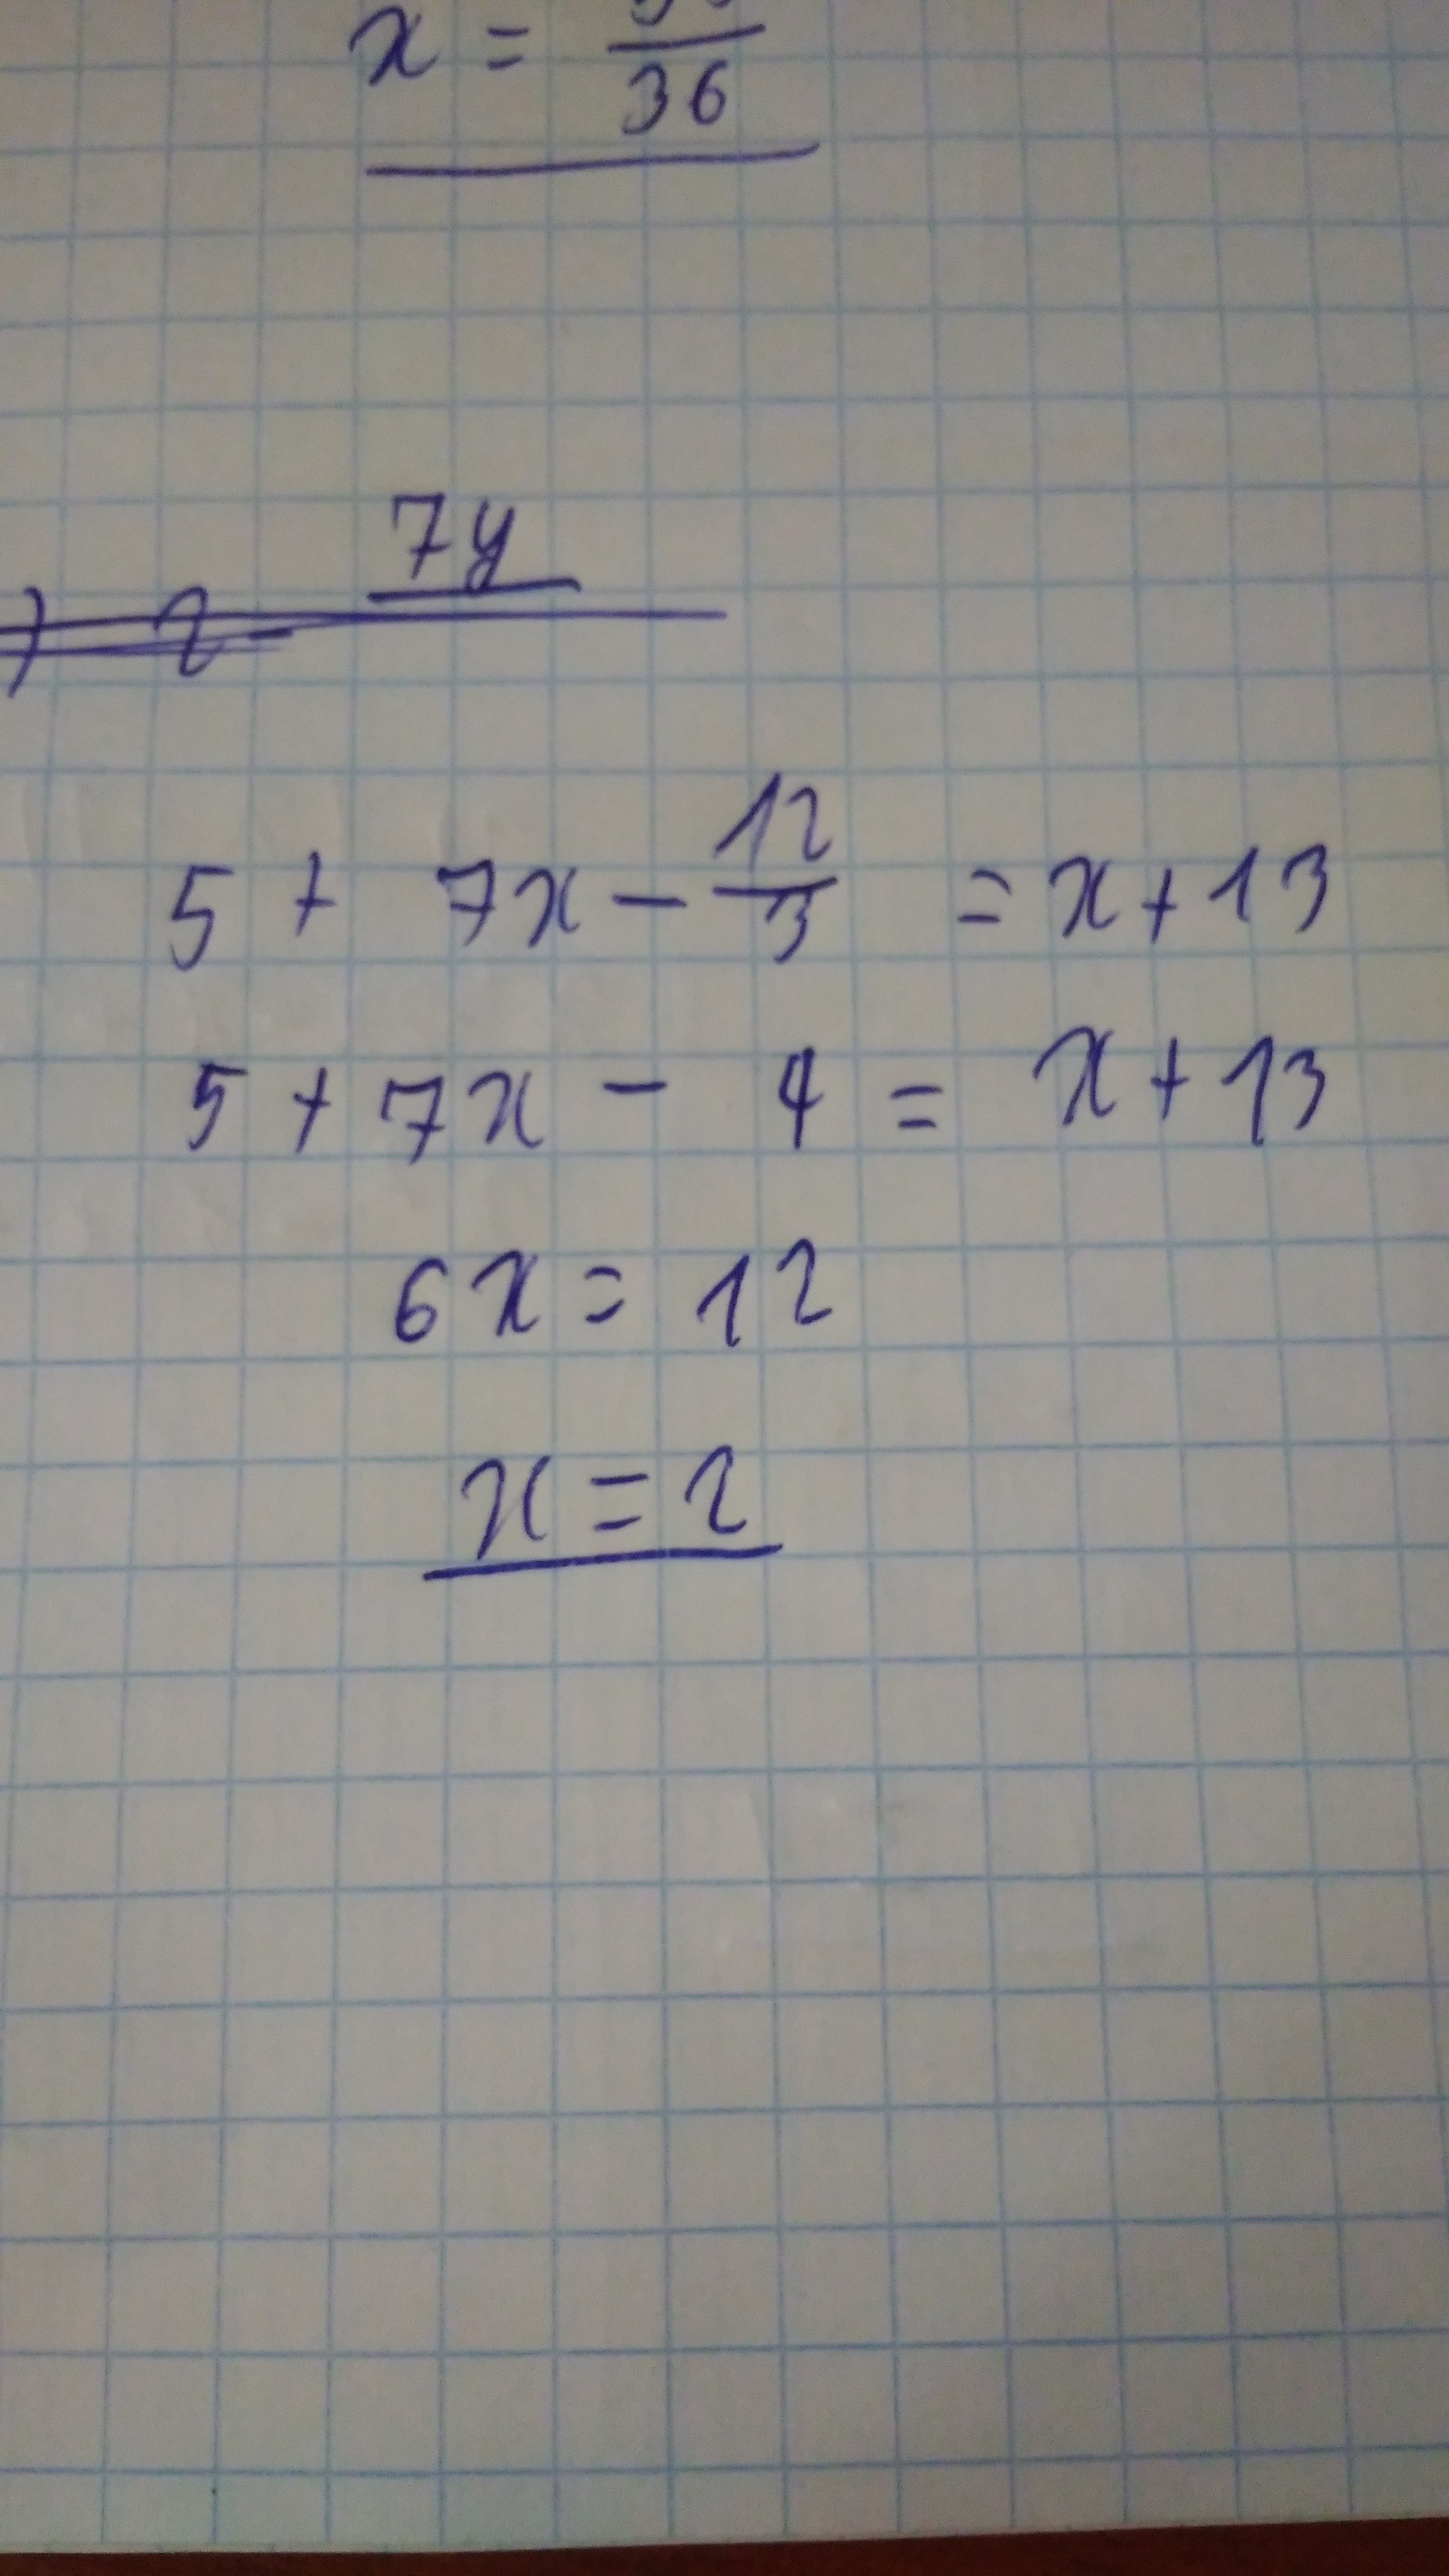 x = /36
7y
) 2 -
5 + 7x - 12/3 = x + 13
5 + 7x - 4 = x + 13
6x = 12
x = 2